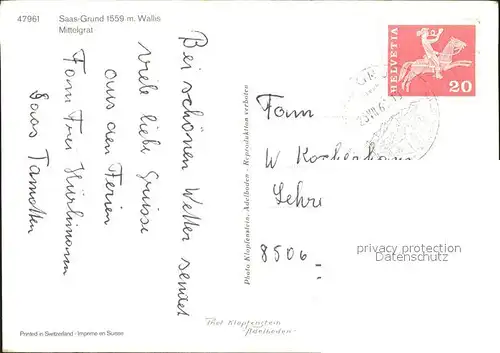 47961 Saas-Grund 1559 m. Wallis
Mittelgrat
Bei schönen Wetter sendet
viele liebe Grüsse
aus den Ferien
Fam Frei Hürlimann
Saas
HELVETIA
20
Fam
W
Lehr
8506
privacy protection
Datenschutz
Photo Klopfenstein, Adelboden - Reproduktion verboten
Phot Klopfenstein
Adelboden
Printed in Switzerland - Imprimé en Suisse